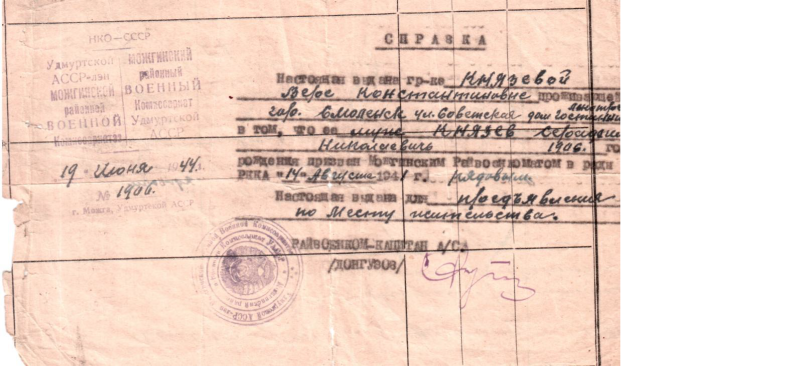 НКО—СССР
Удмуртской АССР-лэн МОЖГИНСКОЙ районной ВОЕННОЙ Комиссариатэз
МОЖГИНСКИЙ районный ВОЕННЫЙ Комиссариат Удмуртской АССР
19 Июня 44 г.
№ 1906.
г. Можга, Удмуртской АССР
СПРАВКА
Настоящая выдана гр-ке КНЯЗЕВОЙ
Вере Константиновне проживающей
гор. Смоленск ул. Советская дом
в том, что ее муж КНЯЗЕВ
Николаевич 1906. го
рождения призван Можгинским Райвоенкоматом в ряды
РККА "14" Августа 1941 г. рядовым
Настоящая выдана для предъявления
по месту жительства.
РАЙВОЕНКОМ-КАПИТАН А/СЛ
/ДОНГУЗОВ/